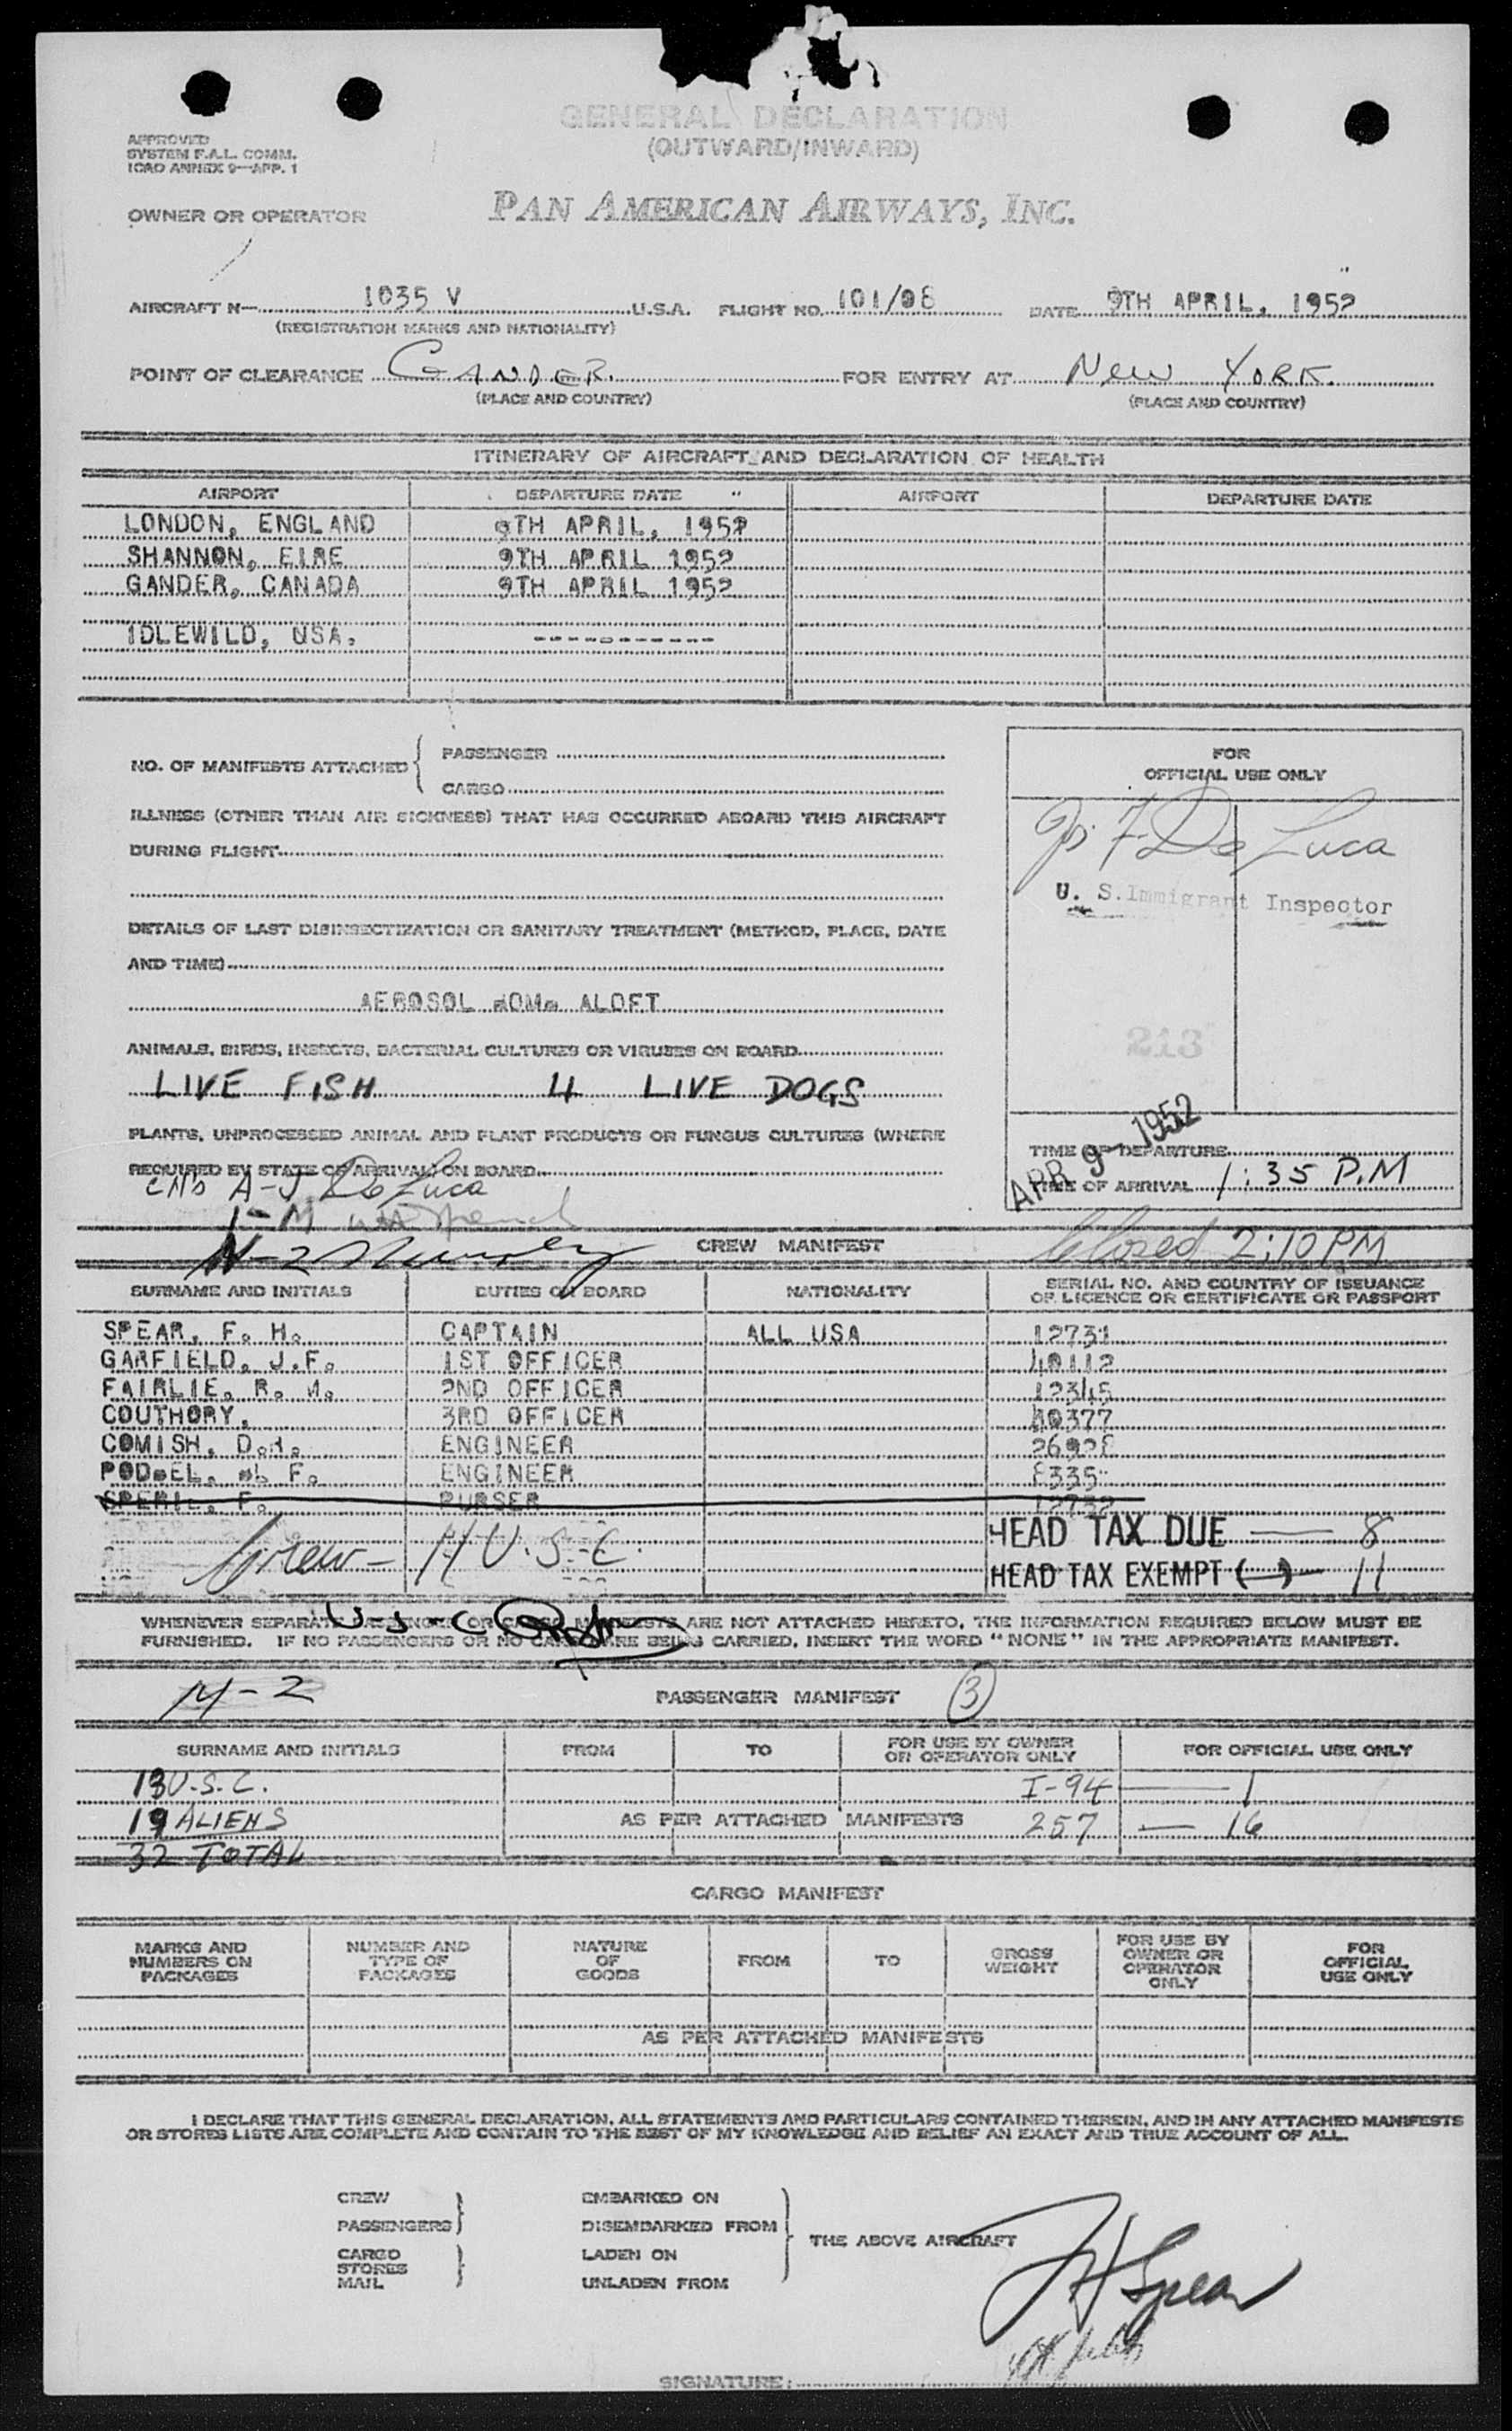 GENERAL DECLARATION
(OUTWARD/INWARD)
APPROVED
SYSTEM F.A.L. COMM.
ICAO ANNEX 9—APP. 1
OWNER OR OPERATOR PAN AMERICAN AIRWAYS, INC.
AIRCRAFT N— 1035 V U.S.A. FLIGHT NO. 101/08 DATE 9TH APRIL, 1952
(REGISTRATION MARKS AND NATIONALITY)
POINT OF CLEARANCE GANDER. FOR ENTRY AT New YORK.
(PLACE AND COUNTRY) (PLACE AND COUNTRY)
ITINERARY OF AIRCRAFT AND DECLARATION OF HEALTH
AIRPORT DEPARTURE DATE AIRPORT DEPARTURE DATE
LONDON, ENGLAND 9TH APRIL, 1952
SHANNON, EIRE 9TH APRIL 1952
GANDER, CANADA 9TH APRIL 1952
IDLEWILD, USA. -----------
NO. OF MANIFESTS ATTACHED { PASSENGER
CARGO
ILLNESS (OTHER THAN AIR SICKNESS) THAT HAS OCCURRED ABOARD THIS AIRCRAFT
DURING FLIGHT
DETAILS OF LAST DISINSECTIZATION OR SANITARY TREATMENT (METHOD, PLACE, DATE
AND TIME)
AEROSOL ALOFT
ANIMALS, BIRDS, INSECTS, BACTERIAL CULTURES OR VIRUSES ON BOARD
LIVE FISH 4 LIVE DOGS
PLANTS, UNPROCESSED ANIMAL AND PLANT PRODUCTS OR FUNGUS CULTURES (WHERE
REQUIRED BY STATE OF ARRIVAL) ON BOARD
A-J De Luca
FOR
OFFICIAL USE ONLY
F De Luca
U. S. Immigrant Inspector
213
APR 9 - 1952
TIME OF DEPARTURE
TIME OF ARRIVAL 1:35 P.M
Closed 2:10 PM
CREW MANIFEST
SURNAME AND INITIALS DUTIES ON BOARD NATIONALITY SERIAL NO. AND COUNTRY OF ISSUANCE
OF LICENCE OR CERTIFICATE OR PASSPORT
SPEAR, F. H. CAPTAIN ALL USA 12731
GARFIELD, J.F. 1ST OFFICER 40112
FAIRLIE, R. 2ND OFFICER 12345
COUTHORY, 3RD OFFICER 40377
COMISH, D.H. ENGINEER 26928
F. ENGINEER 8335
SPERIL, F. PURSER 12732
Crew - U.S.C.
HEAD TAX DUE — 8
HEAD TAX EXEMPT ( ) — 11
WHENEVER SEPARATE PASSENGER OR CARGO MANIFESTS ARE NOT ATTACHED HERETO, THE INFORMATION REQUIRED BELOW MUST BE
FURNISHED. IF NO PASSENGERS OR NO CARGO ARE BEING CARRIED, INSERT THE WORD "NONE" IN THE APPROPRIATE MANIFEST.
M-2 PASSENGER MANIFEST 3
SURNAME AND INITIALS FROM TO FOR USE BY OWNER
OR OPERATOR ONLY FOR OFFICIAL USE ONLY
13 U.S.C. I-94 — 1
19 ALIENS AS PER ATTACHED MANIFESTS 257 — 16
32 TOTAL
CARGO MANIFEST
MARKS AND
NUMBERS ON
PACKAGES
NUMBER AND
TYPE OF
PACKAGES
NATURE
OF
GOODS
FROM
TO
GROSS
WEIGHT
FOR USE BY
OWNER OR
OPERATOR
ONLY
FOR
OFFICIAL
USE ONLY
AS PER ATTACHED MANIFESTS
I DECLARE THAT THIS GENERAL DECLARATION, ALL STATEMENTS AND PARTICULARS CONTAINED THEREIN, AND IN ANY ATTACHED MANIFESTS
OR STORES LISTS ARE COMPLETE AND CONTAIN TO THE BEST OF MY KNOWLEDGE AND BELIEF AN EXACT AND TRUE ACCOUNT OF ALL.
CREW
PASSENGERS
CARGO
STORES
MAIL
EMBARKED ON
DISEMBARKED FROM
LADEN ON
UNLADEN FROM
THE ABOVE AIRCRAFT
F H Spear
SIGNATURE: